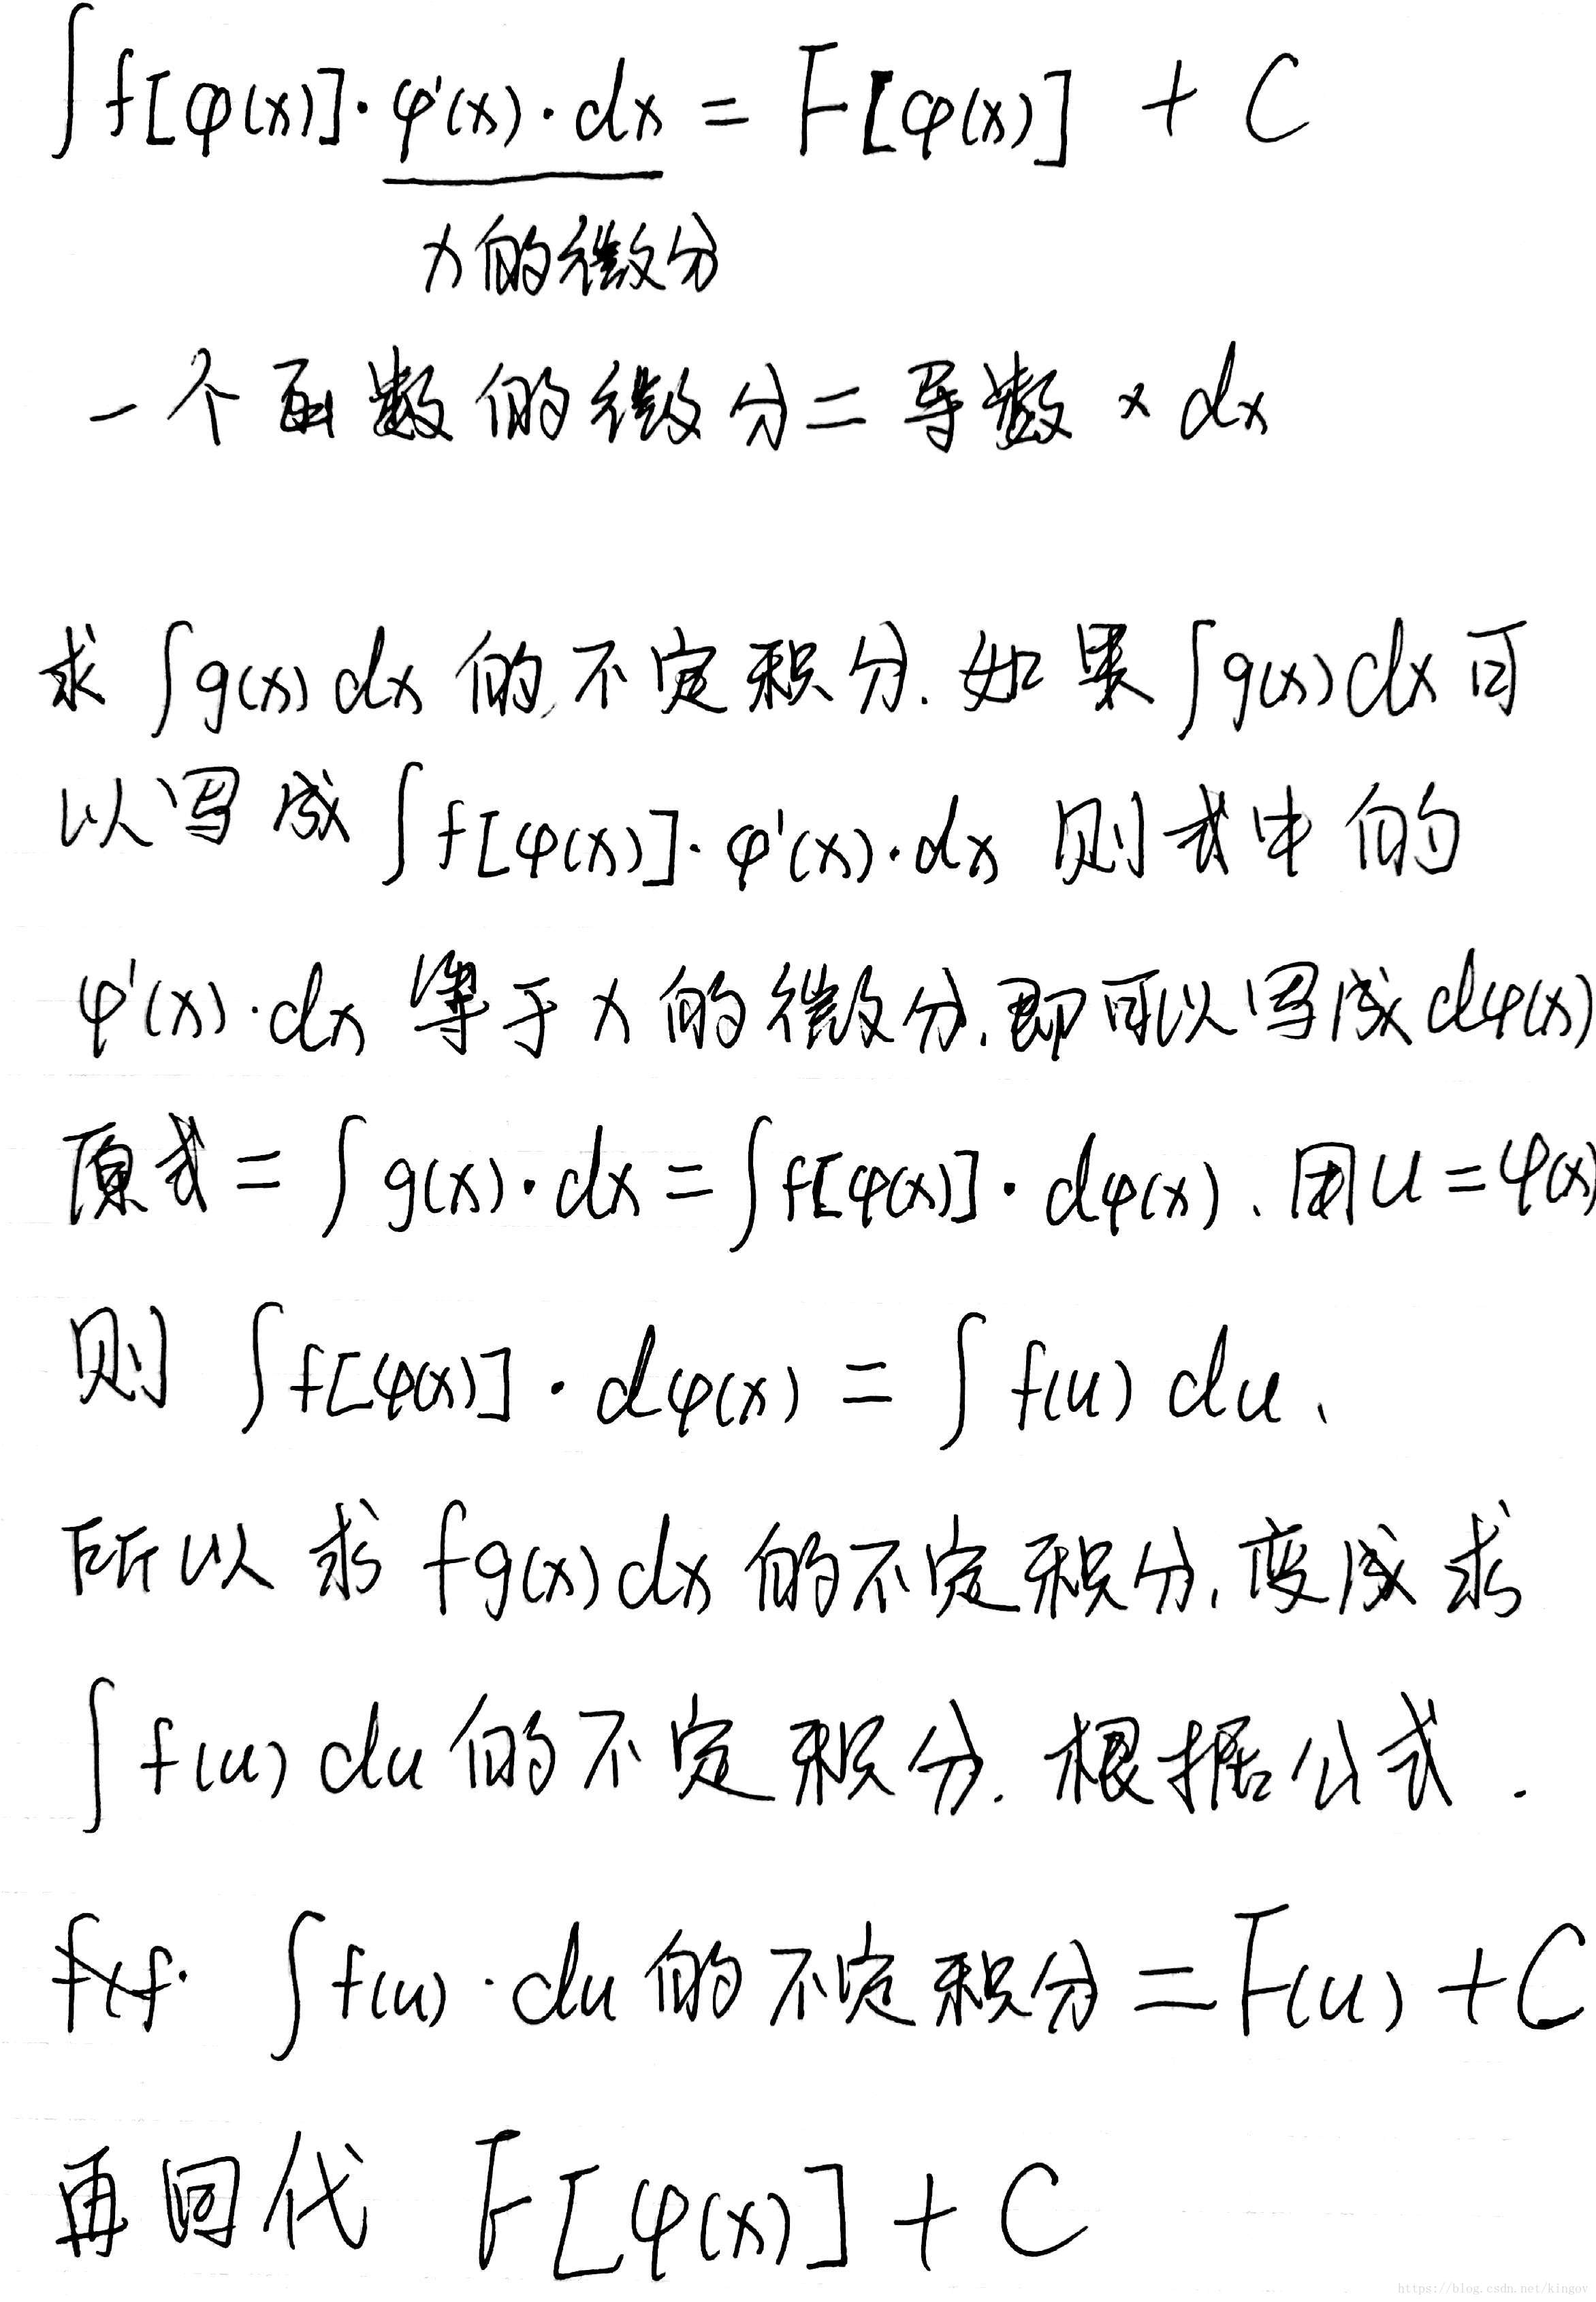 ∫f[φ(x)]·φ'(x)·dx = F[φ(x)] + C
x的微分
一个函数的微分=导数×dx
求∫g(x)dx的不定积分.如果∫g(x)dx可
以写成∫f[φ(x)]·φ'(x)·dx则式中的
φ'(x)·dx等于x的微分.即可以写成dφ(x)
原式=∫g(x)·dx=∫f[φ(x)]·dφ(x).因u=φ(x)
则∫f[φ(x)]·dφ(x)=∫f(u)du.
所以求∫g(x)dx的不定积分,变成求
∫f(u)du的不定积分.根据公式.
∫f(u)·du的不定积分=F(u)+C
再回代 F[φ(x)]+C
https://blog.csdn.net/kingov